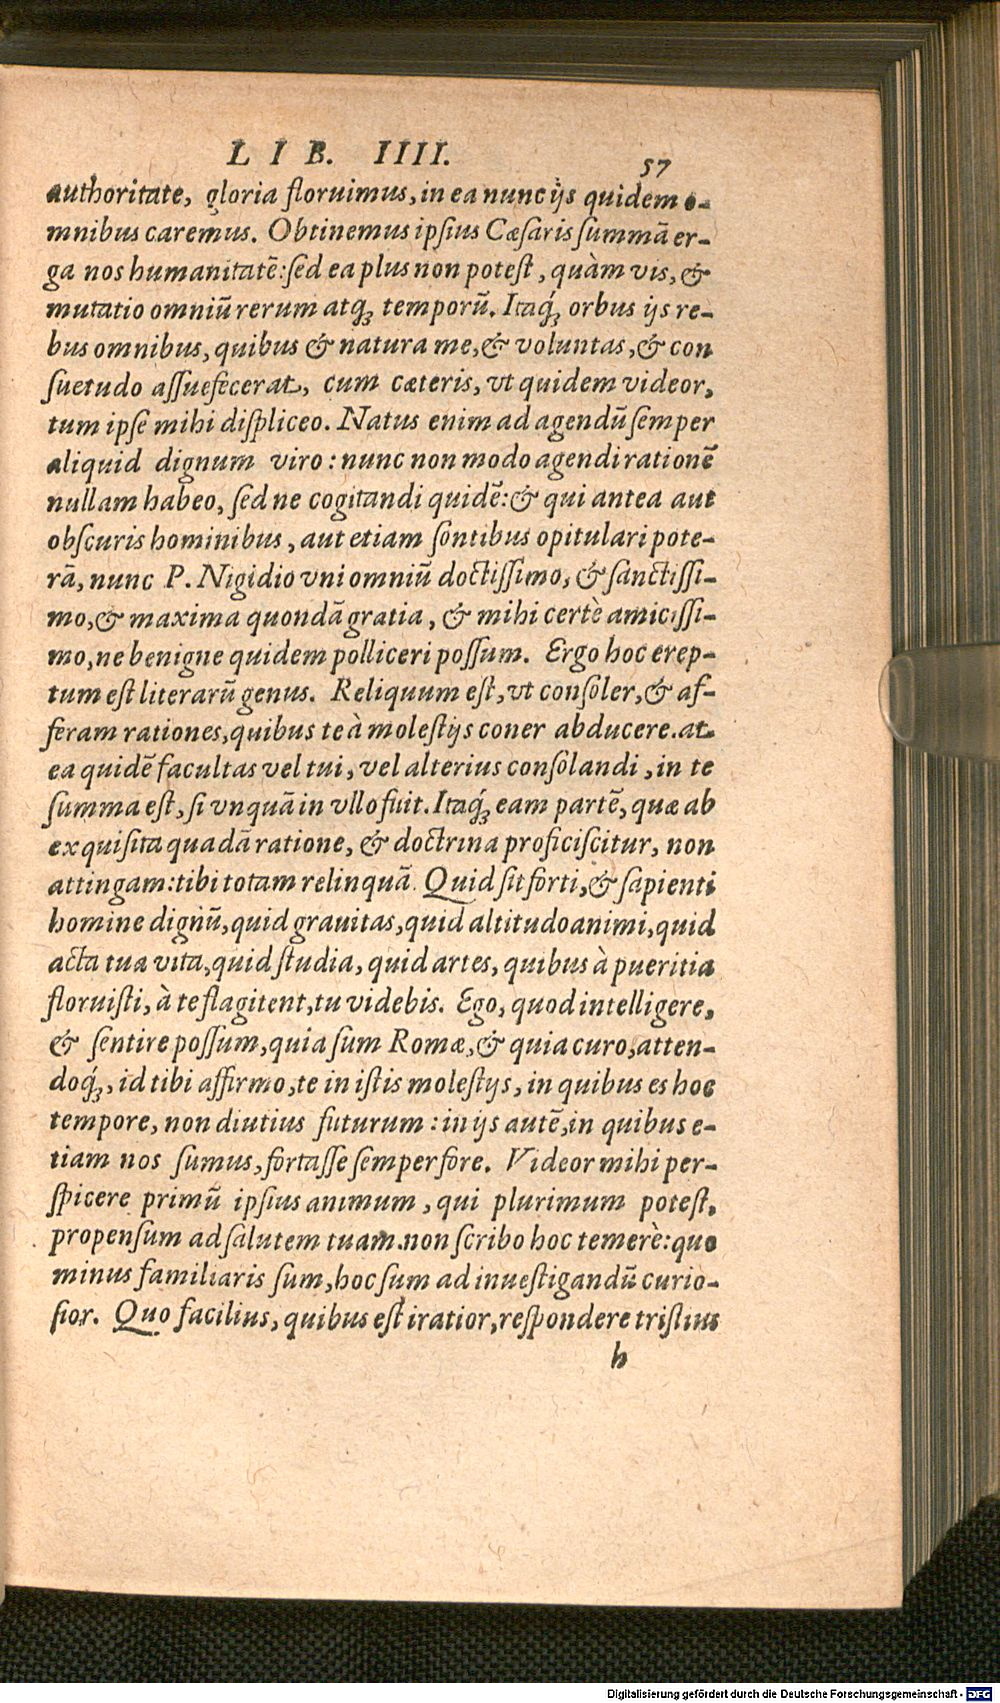 LIB. IIII. 57
authoritate, gloria floruimus, in ea nunc ijs quidem o-
mnibus caremus. Obtinemus ipſius Cæſaris ſummā er-
ga nos humanitatē: ſed ea plus non poteſt, quàm vis, &
mutatio omniū rerum atq; temporū. Itaq́; orbus ijs re-
bus omnibus, quibus & natura me, & voluntas, & con
ſuetudo aſſuefecerat, cum cæteris, vt quidem videor,
tum ipſe mihi diſpliceo. Natus enim ad agendū ſemper
aliquid dignum viro: nunc non modo agendi rationē
nullam habeo, ſed ne cogitandi quidē: & qui antea aut
obſcuris hominibus, aut etiam ſontibus opitulari pote-
rā, nunc P. Nigidio vni omniū doctiſſimo, & ſanctiſſi-
mo, & maxima quondā gratia, & mihi certè amiciſſi-
mo, ne benigne quidem polliceri poſſum. Ergo hoc erep-
tum eſt literarū genus. Reliquum eſt, vt conſoler, & af-
feram rationes, quibus te à moleſtijs coner abducere. at
ea quidē facultas vel tui, vel alterius conſolandi, in te
ſumma eſt, ſi vnquā in vllo fuit. Itaq́; eam partē, quæ ab
exquiſita quadā ratione, & doctrina proficiſcitur, non
attingam: tibi totam relinquā. Quid ſit forti, & ſapienti
homine dignū, quid grauitas, quid altitudo animi, quid
acta tua vita, quid ſtudia, quid artes, quibus à pueritia
floruiſti, à te flagitent, tu videbis. Ego, quod intelligere,
& ſentire poſſum, quia ſum Romæ, & quia curo, atten-
doq́;, id tibi affirmo, te in iſtis moleſtijs, in quibus es hoc
tempore, non diutius futurum: in ijs autē, in quibus e-
tiam nos ſumus, fortaſſe ſemper fore. Videor mihi per-
ſpicere primū ipſius animum, qui plurimum poteſt,
propenſum ad ſalutem tuam. non ſcribo hoc temerè: quo
minus familiaris ſum, hoc ſum ad inueſtigandū curio-
ſior. Quo facilius, quibus eſt iratior, reſpondere triſtius
h
Digitalisierung gefördert durch die Deutsche Forschungsgemeinschaft - DFG